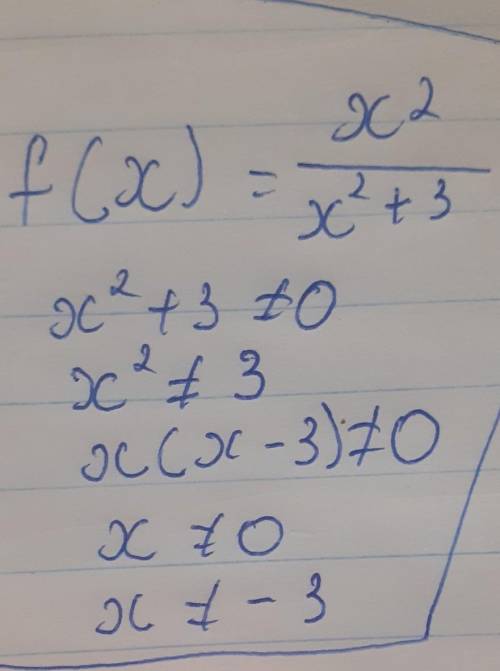 f(x) = x² / x² + 3
x² + 3 ≠ 0
x² ≠ 3
x(x - 3) ≠ 0
x ≠ 0
x ≠ - 3